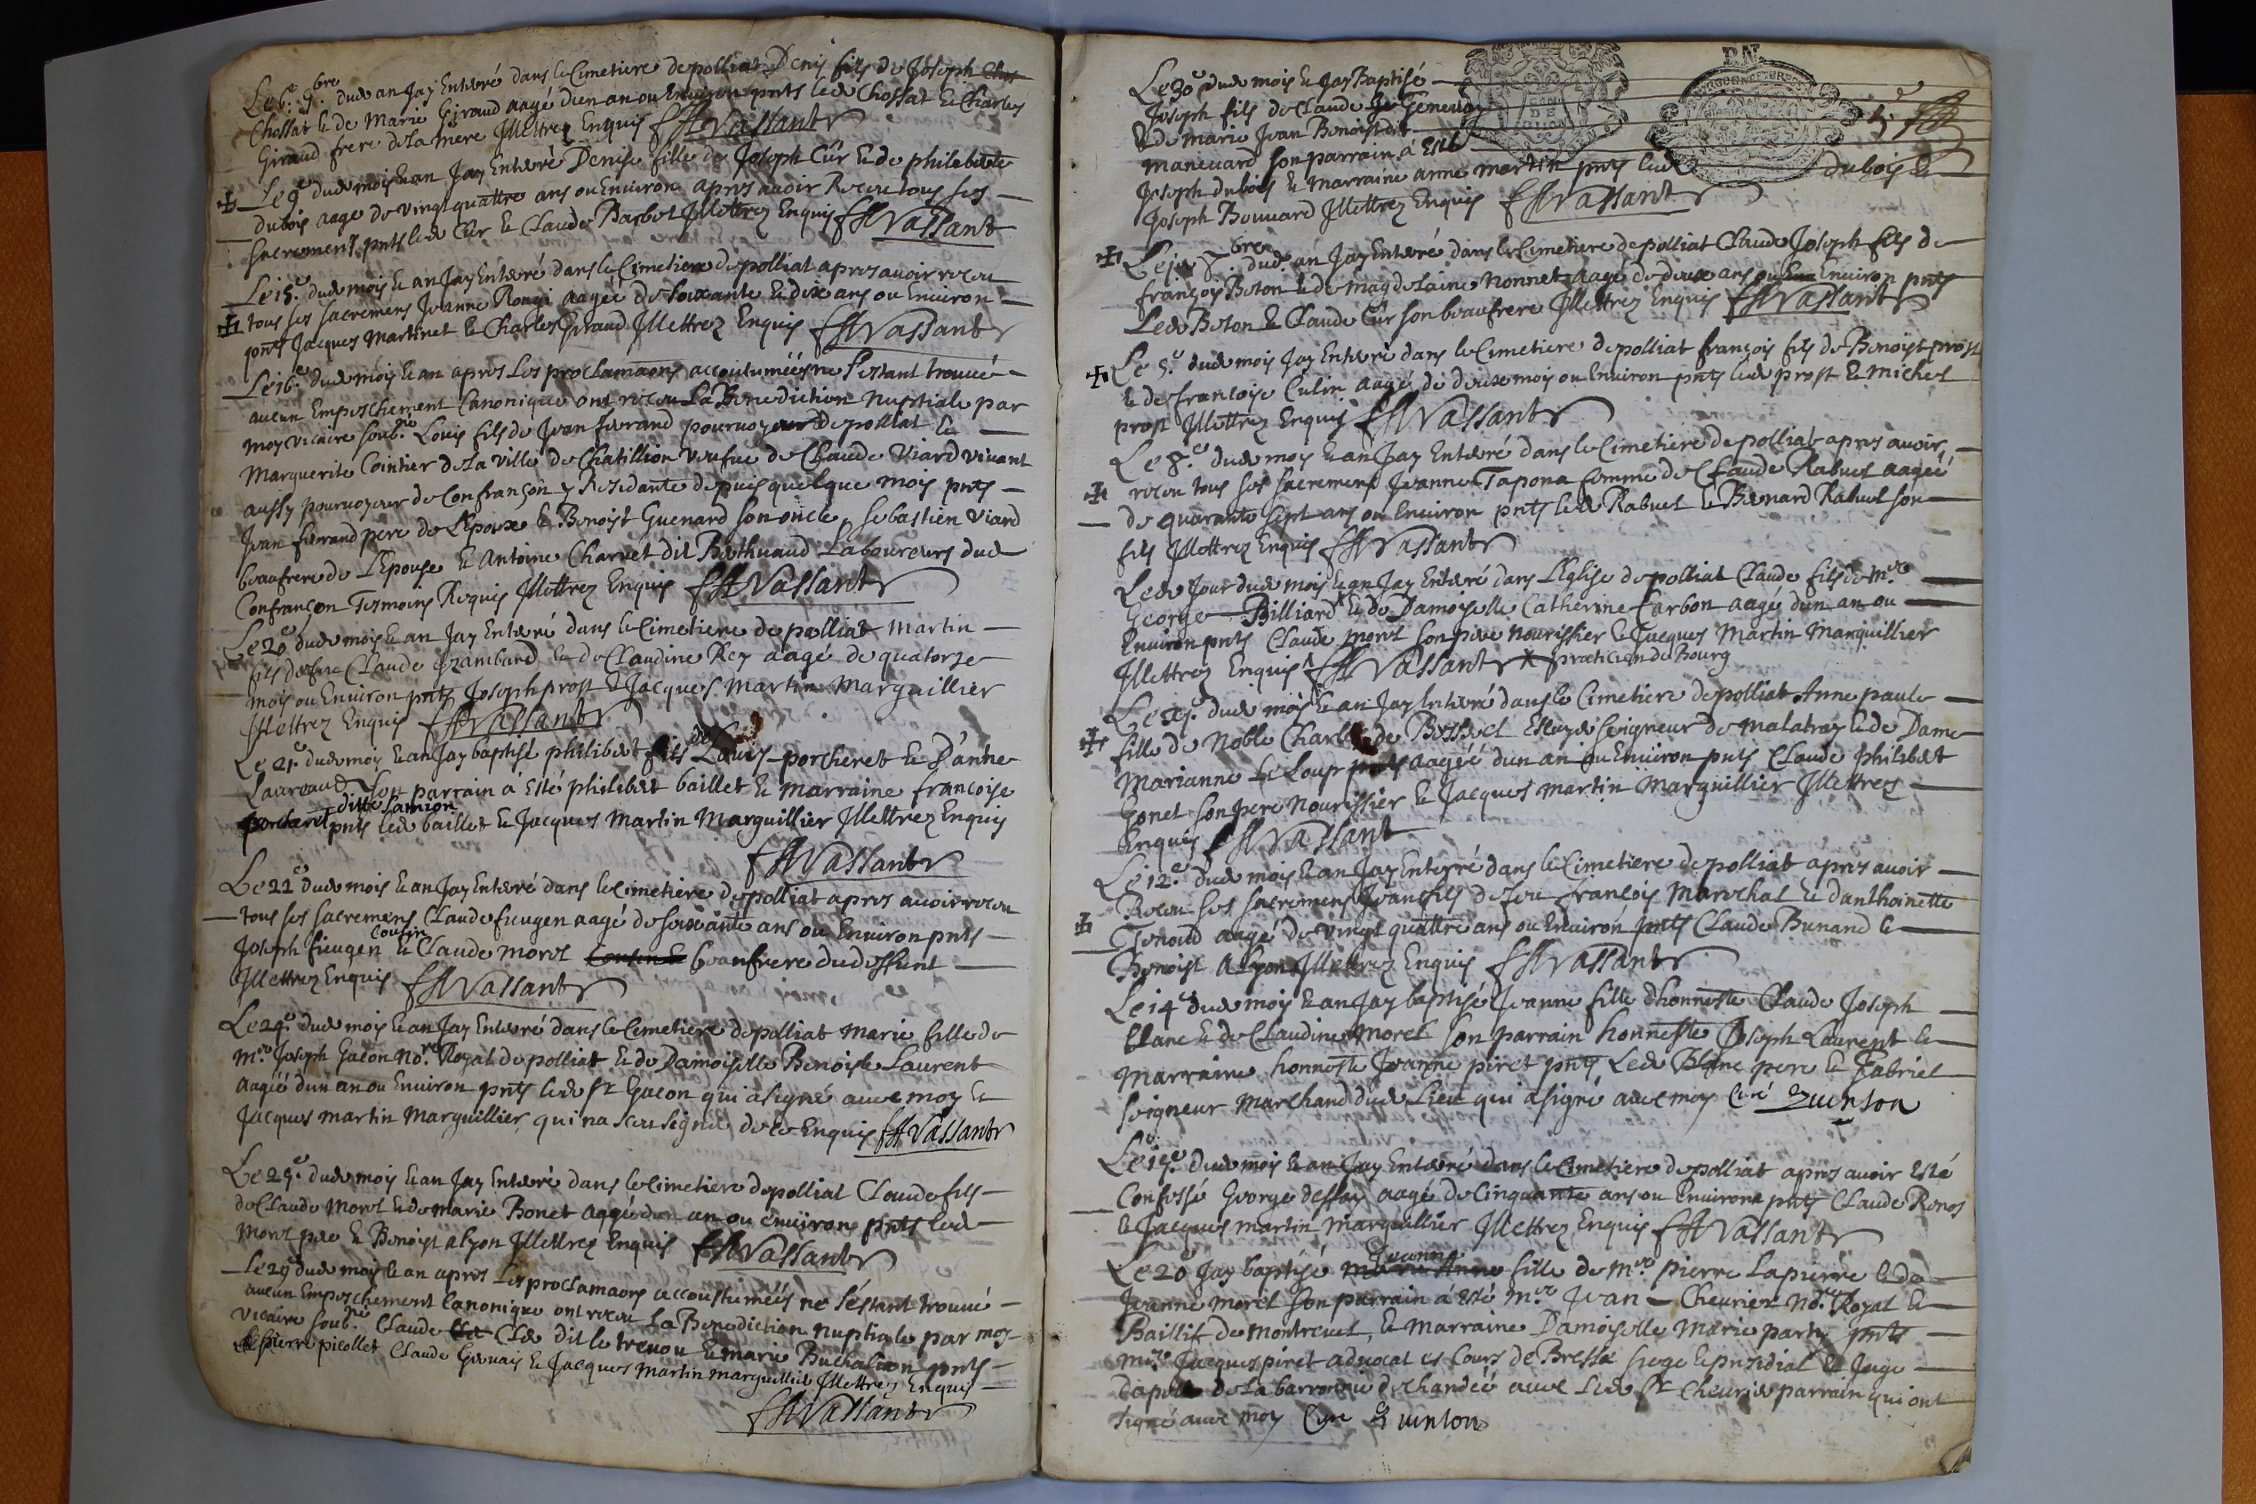 Le 1.er 9.bre dud an Jay Enterré dans le Cimetiere de polliat Denis fils de Joseph
Chossat & de Marie Giraud aagé dun an ou Environ pnts led Chossat & Charles
Giraud frere de la mere Illettrez Enquis Vassant
Le 9.e dud mois & an Jay Enterré Denise fille de Joseph Cur & de philiberte
dubois aage de vingt quattre ans ou Environ apres avoir Receu tous ses
sacremens pnts led Cur & Claude Barbet Illettrez Enquis Vassant
Le 15.e dud mois & an Jay Enterré dans le Cimetiere de polliat apres avoir receu
tous ses sacremens Jeanne Rongi aagée de soixante & dix ans ou Environ
pnts Jacques Martinet & Charles Giraud Illettrez Enquis Vassant
Le 16.e dud mois & an apres Les proclamaons accoutumées ne sestant trouvé
aucun Empeschement Canonique ont receu La Benediction Nuptiale par
moy vicaire soub.né Louis fils de Jean ferrand pourvoyeur de polliat &
Marguerite Cointier de la ville de Chatillion veufue de Claude Viard vivant
aussy pourvoyeur de Confrançon y Residante depuis quelque mois pnts
Jean ferrand pere de Lepoux & Benoist Guenard son oncle, sebastien Viard
beaufrere de Lepouse & Antoine Charvet dit Bethuaud Laboureurs dud
Confrançon Tesmoins Requis Illettrez Enquis Vassant
Le 20.e dud mois & an Jay Enterré dans le Cimetiere de polliat Martin
fils de feu Claude Gzambard & de Claudine Rey aagé de quatorze
mois ou Environ pnts Joseph prost & Jacques Martin Marguillier
Illettrez Enquis Vassant
Le 21.e dud mois & an Jay baptisé philibert fils de Louis porcheret & D'anthe
Laureaud son parrain a Esté philibert baillet & marraine francoise
ditte Lamion
porcheret pnts led baillet & Jacques Martin Marguillier Illettrez Enquis
Vassant
Le 22.e dud mois & an Jay Enterré dans le Cimetiere de polliat apres avoir receu
tous ses sacremens Claude fieugen aagé de soixante ans ou Environ pnts
Joseph fieugen cousin & Claude morel beaufrere dudeffunt
Illettrez Enquis Vassant
Le 24.e dud mois & an Jay Enterré dans le Cimetiere de polliat Marie fille de
m.re Joseph Gacon No.re Royal de polliat & de Damoiselle Benoiste Laurent
aagéé dun an ou Environ pnts led Sr Gacon qui a signé avec moy &
Jacques martin Marguillier qui na sceu signer de ce Enquis Vassant
Le 25.e dud mois & an Jay Enterré dans le Cimetiere de polliat Claude fils
de Claude Morel & de marie Bonet aagé dun an ou environ pnts led
Morel pere & Benoist alyon Illettrez Enquis Vassant
Le 29.e dud mois & an apres Les proclamaons accoustumées ne sestant trouvé
aucun Empeschement Canonique ont receu La Benediction nuptiale par moy
vicaire soub.né Claude Cle dit le trevou & marie Buchalion pnts
pierre picollet Claude Gervais & Jacques martin marguillier Illettrez Enquis
Vassant
Le 30.e dud mois & Jay Baptisé
Joseph fils de Claude Genevay
& de marie Jvan Benoist dit
maneuard son parrain a Esté
Joseph dubois & marraine anne martin pnts led dubois &
Joseph Bouvard Illettrez Enquis Vassant
Le 1er X.bre dud an Jay Enterré dans le Cimetiere de polliat Claude Joseph fils de
françois Beton & de magdelaine Nonnet aagé de deux ans ou Environ pnts
Led Beton & Claude Cur son beaufrere Illettrez Enquis Vassant
Le 5.e dud mois Jay Enterré dans le Cimetiere de polliat françois fils de Benoist prost
& de francoise Culin aagé de deux mois ou Environ pnts led prost & michel
prost Illettrez Enquis Vassant
Le 8.e dud mois & an Jay Enterré dans le Cimetiere de polliat apres avoir
receu tous ses sacremens Jeanne Tapona femme de Claude Rabuel aagéé
de quarante sept ans ou Environ pnts led Rabuel & Bernard Rabuel son
fils Illettrez Enquis Vassant
Led Jour dud mois & an Jay Enterré dans L'Eglise de polliat Claude fils de m.re
George Billiard & de Damoiselle Catherine Carbon aagé dun an ou
Environ pnts Claude Morel son pere nourissier & Jacques Martin Marguillier
Illettrez Enquis Vassant x praticien de Bourg
Le 11.e dud mois & an Jay Enterré dans le Cimetiere de polliat Anne paule
fille de Noble Charles de Bosseel Escuyer Seigneur de malatray & de Dame
Marianne Le Loup aagéé dun an ou Environ pnts Claude philibert
Gonet son pere Nourissier & Jacques martin Marguillier Illettrez
Enquis Vassant
Le 12.e dud mois & an Jay Enterré dans le Cimetiere de polliat apres avoir
Receu ses sacremens Jean fils de feu françois Marechal & danthoinette
Genoud aagé de vingt quattre ans ou Environ pnts Claude Bunand &
Benoist Alyon Illettrez Enquis Vassant
Le 14.e dud mois & an Jay baptisé Jeanne fille dhonneste Claude Joseph
blanc & de Claudine Morel son parrain honneste Joseph Laurent &
marraine honneste Jeanne piret pnts Led Blanc pere & Gabriel
seigneur Marchand dud Lieu qui a signé avec moy Curé Quinson
Le 15.e dud mois & an Jay Enterré dans le Cimetiere de polliat apres avoir Esté
Confessé George dessay aagé de Cinquante ans ou Environ pnts Claude Renos
& Jacques martin marguillier Illettrez Enquis Vassant
Le 20 Jay baptisé Jeanne fille de m.re pierre Lapierre & de
Jeanne morel son parrain a Esté m.re Jean Chevrier No.re Royal &
Baillif de montrevel, & marraine Damoiselle Marie party pnts
m.re Jacques piret advocat es Cours de Bresse siege & presidial & Juge
Dapel de la barronie de chandéé avec Led Sr Chevrier parrain qui ont
signé avec moy Cure Quinson